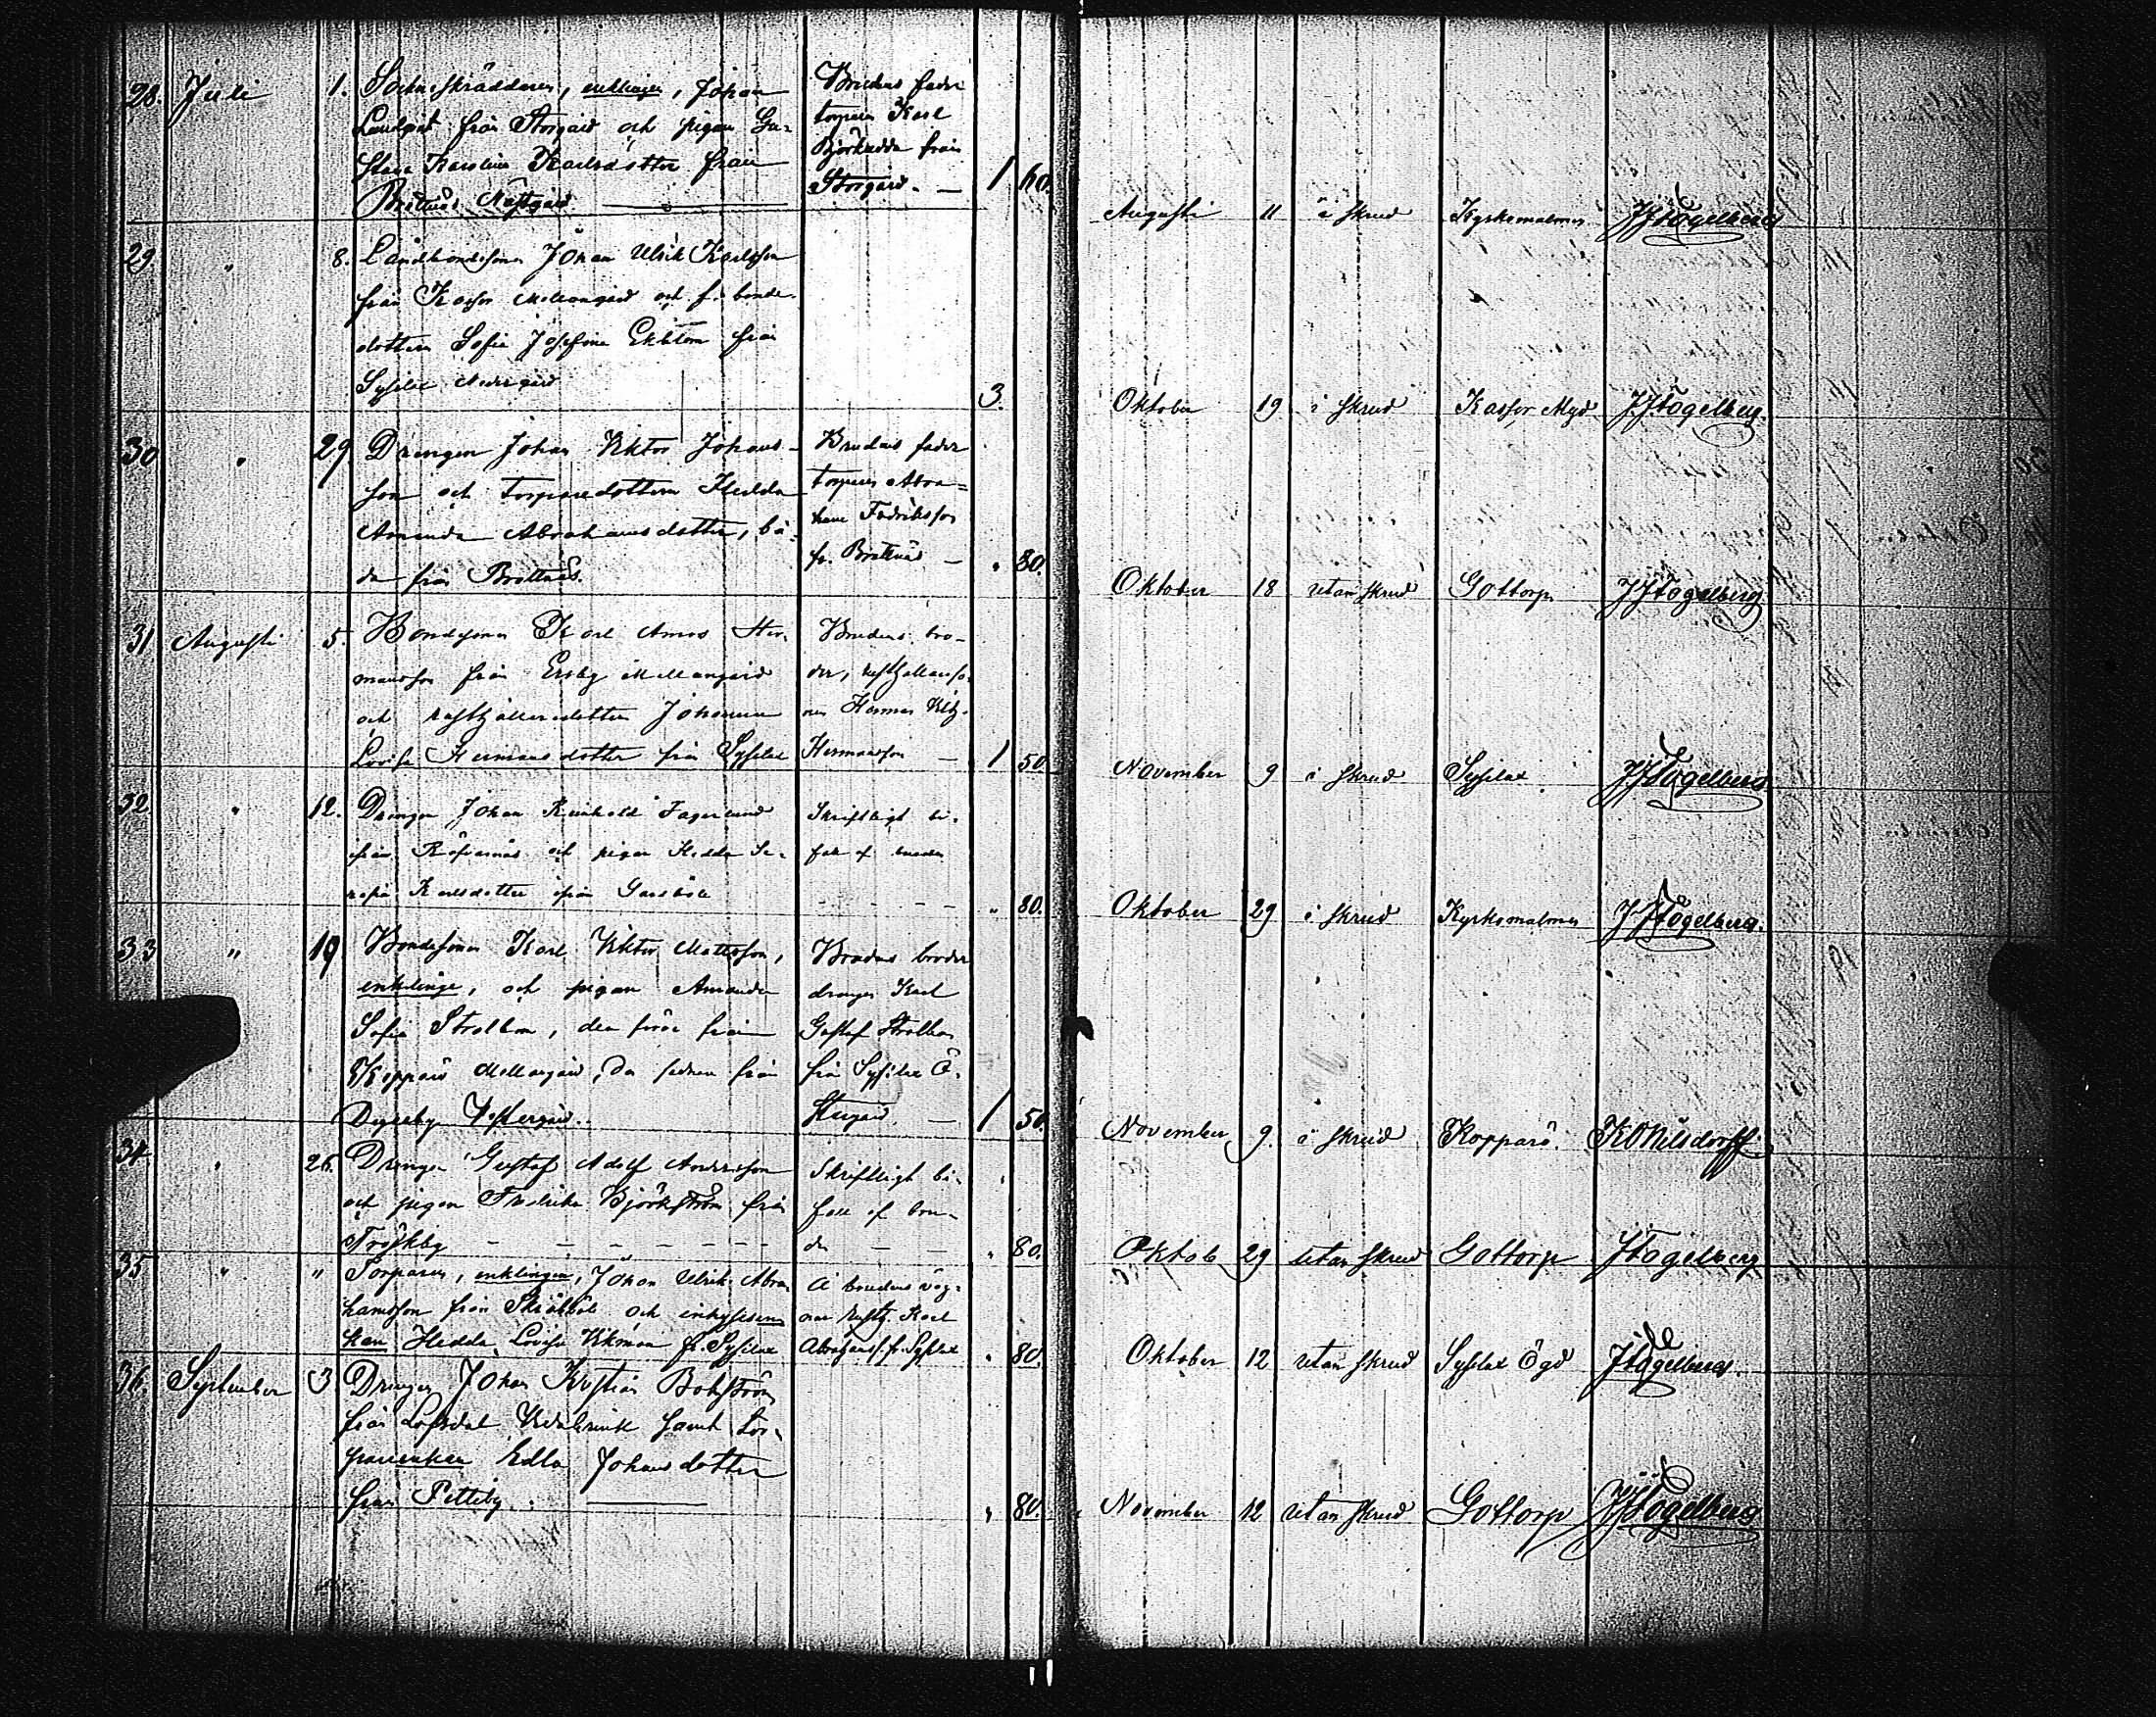 28. Juli 1. Sockneskräddaren, enklingen, Johan
Lindqvist från Storgård och pigan Gu-
stava Karolina Karlsdotter från
Brettnäs Nästgård.
Brudens fader
torparen Karl
Björkudda från
Storgård. — 1 60.
Augusti 11 i skrud Kyrkomalmen JFFogelberg
29. " 8. Landbondesonen Johan Ulrik Karlsson
från Kasfor Mellangård och f. bonde-
dottern Sofia Josefina Ekblom från
Syfilax Nedergård
3.
Oktober 19 i skrud Kasfor Mgd JFFogelberg.
30 " 29 Drengen Johan Viktor Johans-
son och torparedottern Hedda
Amanda Abrahamsdotter, bå-
da från Brettnäs.
Brudens fader
torparen Abra-
ham Fredriksson
fr. Brettnäs — " 80.
Oktober 18 utan skrud Gottorp JFFogelberg
31 Augusti 5. Bondesonen Karl Amos Her-
mansson från Ersby Mellangård
och rusthållaredottern Johanna
Lovisa Hermansdotter från Syfilax
Brudens bro-
der, rusthållareso-
nen Herman
Hermansson — 1 50
November 9 i skrud Syfilax JFFogelberg
32 " 12. Drengen Johan Reinhold Fagerlund
från Röfvarnäs och pigan Hedda Se-
rafia Karlsdotter från Garsböle
Skriftligt bi-
fall af bruden
" 80.
Oktober 29 i skrud Kyrkomalmen JFFogelberg.
33 " 19 Bondesonen Karl Viktor Mattsson,
enklinge, och pigan Amanda
Sofia Strålbom, den förre från
Kopparö Mellangård, den sednare från
Dyseby Västergård.
Brudens broder
drengen Karl
Gustaf Strålbom
från Syfilax Ö-
stergård. — 1 50.
November 9. i skrud Kopparö.
34. " 26. Drengen Gustaf Adolf Andersson
och pigan Fredrika Björkström från
Tröskby — — — —
Skriftligt bi-
fall af bru-
den — — " 80.
Oktob 29 utan skrud Gottorp JFogelberg
35 " " Torparen, enklingen, Johan Ulrik Abra-
hamsson från Skräbböle och inhysesen-
kan Hedda Lovisa Vikman fr. Syfilax
Å brudens väg-
nar rusth. Karl
Abrahamss. fr. Syfilax " 80.
Oktober 12 utan skrud Syfilax Ögd JFogelberg.
36. September 3 Drengen Johan Kristian Bokström
från Lofsdal samt tor-
pareenkan Edla Johansdotter
från Petteby. " 80.
November 12 utan skrud Gottorp JFFogelberg